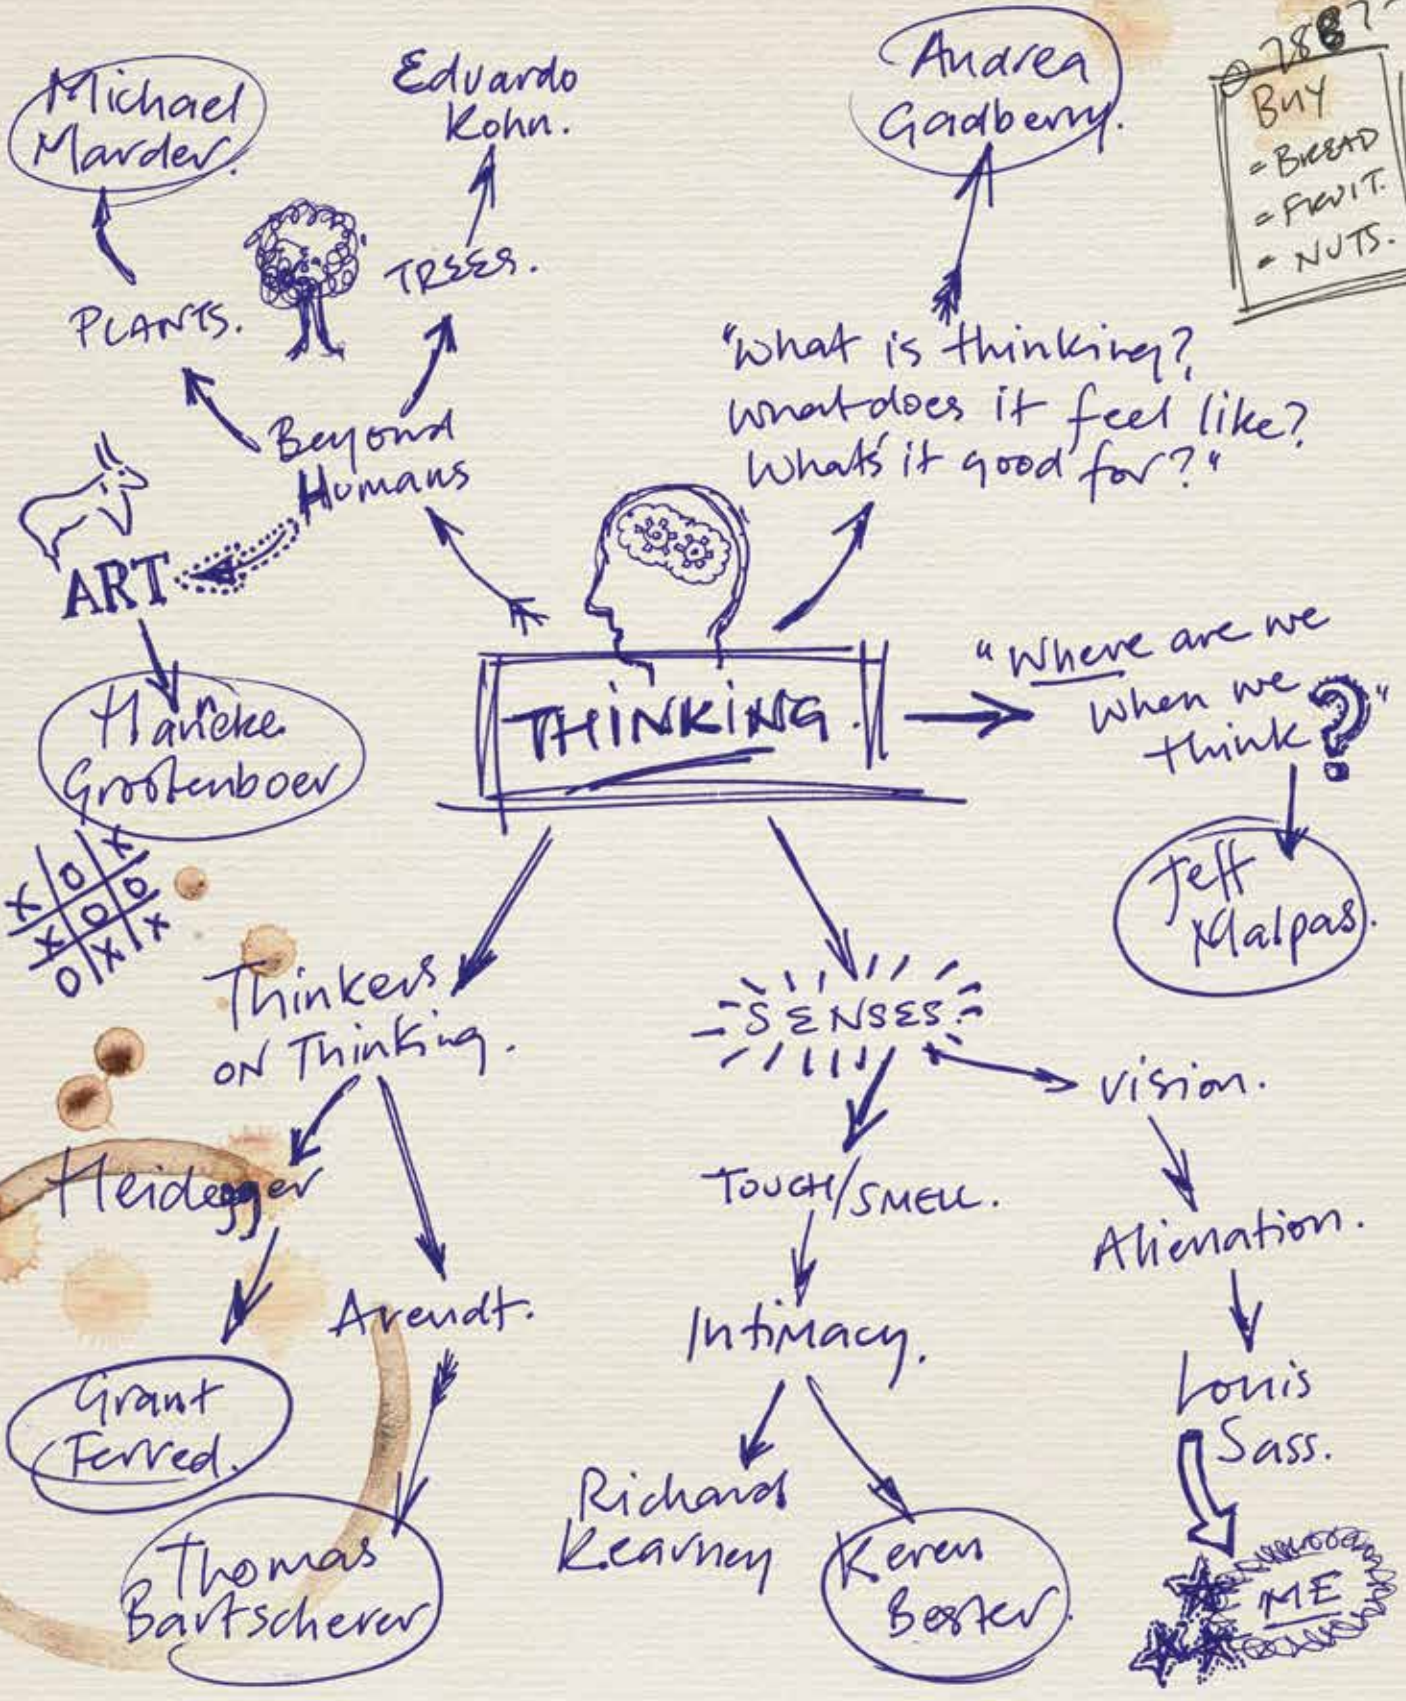 Michael
Marder.
Eduardo
Kohn.
Andrea
Gadberry.
BUY
- BREAD
- FRUIT.
- NUTS.
PLANTS.
TREES.
Beyond
Humans
"What is thinking?
What does it feel like?
What's it good for?"
ART
Hanneke
Grootenboer
THINKING.
"Where are we
when we
think?"
Jeff
Malpas.
X O X
X O O
O X X
Thinkers
on Thinking.
SENSES.
vision.
Heidegger
Arendt.
TOUCH/SMELL.
Alienation.
Intimacy.
Grant
Farred.
Thomas
Bartscherer
Richard
Kearney
Keren
Bester.
Louis
Sass.
ME